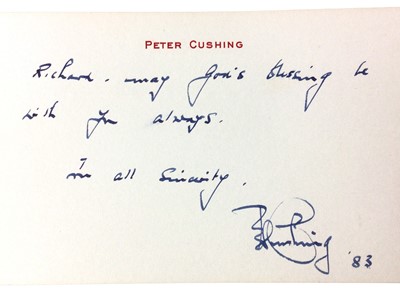 PETER CUSHING
Richard. may God's blessing be
with you always.
In all Sincerity.
P Cushing '83